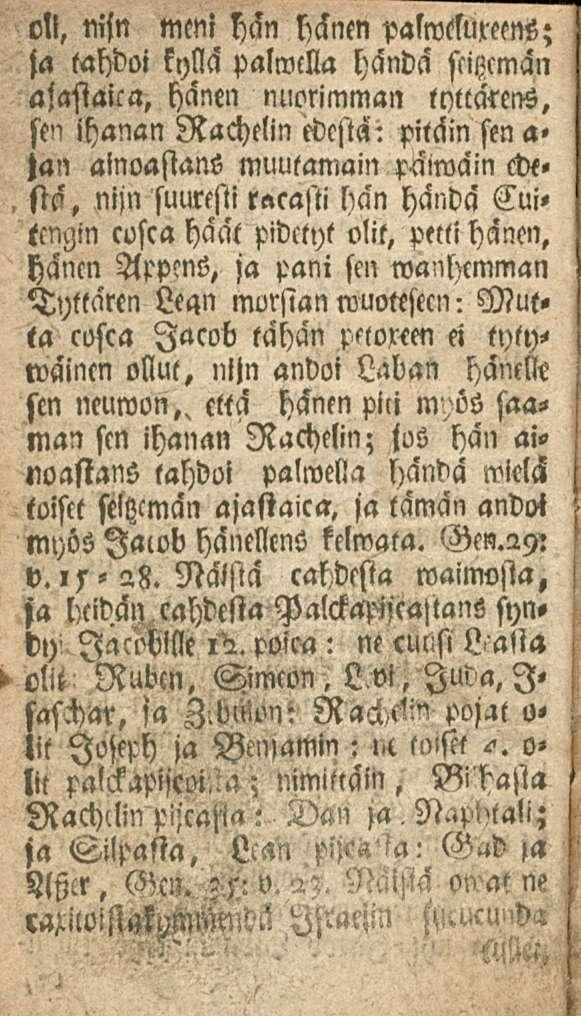 oli, nijn meni hän hänen palweluxeens;
ja tahdoi kyllä palwella händä seitzemän
ajastaica, hänen nuorimman tyttärens,
sen ihanan Rachelin edestä: pitäin sen a-
jan ainoastans muutamain päiwäin ede-
stä, nijn suuresti racasti hän händä Cui-
tengin cosca häät pidetyt olit, petti hänen,
hänen Appens, ja pani sen wanhemman
Tyttären Lean morsian wuoteseen: Mut-
ta cosca Jacob tähän petoxeen ei tyty-
wäinen ollut, nijn andoi Laban hänelle
sen neuwon, että hänen piti myös saa-
man sen ihanan Rachelin; jos hän ai-
noastans tahdoi palwella händä wielä
toiset seitzemän ajastaica, ja tämän andoi
myös Jacob hänellens kelwata. Gen. 29:
v. 15-28. Näistä cahdesta waimosta,
ja heidän cahdesta Palckapijcastans syn-
dyi Jacobille 12. poica: ne cuusi Leasta
olit Ruben, Simeon, Levi, Juda, J-
saschar, ja Zebulon: Rachelin pojat o-
lit Joseph ja Benjamin: ne toiset 4. o-
lit palckapijcoista; nimittäin, Bilhasta
Rachelin pijcasta: Dan ja Naphtali;
ja Silpasta, Lean pijcasta: Gad ja
Asser, Gen. 35: v. 23. Näistä owat ne
caxitoistakymmendä Israelin sucucunda